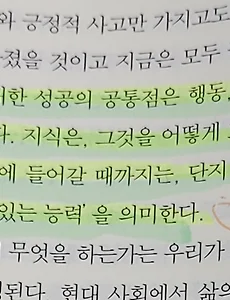 와 긍정적 사고만 가지고도
졌을 것이고 지금은 모두
한 성공의 공통점은 행동,
다. 지식은, 그것을 어떻게
에 들어갈 때까지는, 단지
있는 능력’을 의미한다.
무엇을 하는가는 우리가
된다. 현대 사회에서 삶의